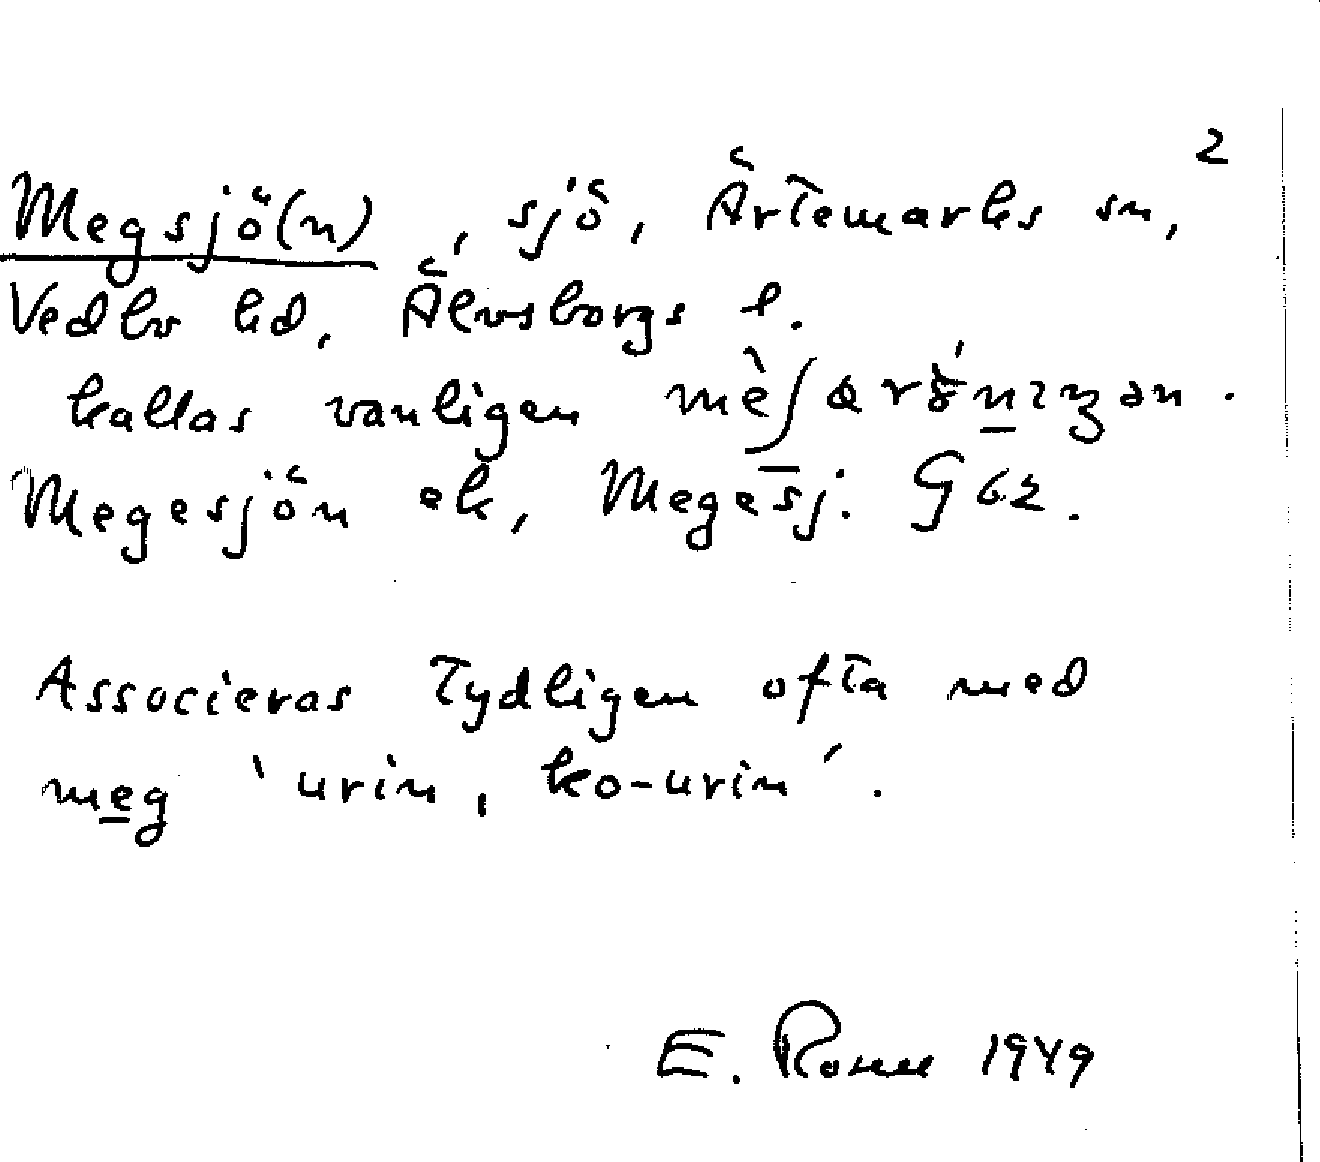 2
Megsjö(n), sjö, Ärtemarks sn,
Vedbo hd, Älvsborgs l.
kallas vanligen
Megesjön ek, Megesj. G62.
Associeras tydligen ofta med
meg 'urin, ko-urin'.
E. 1949